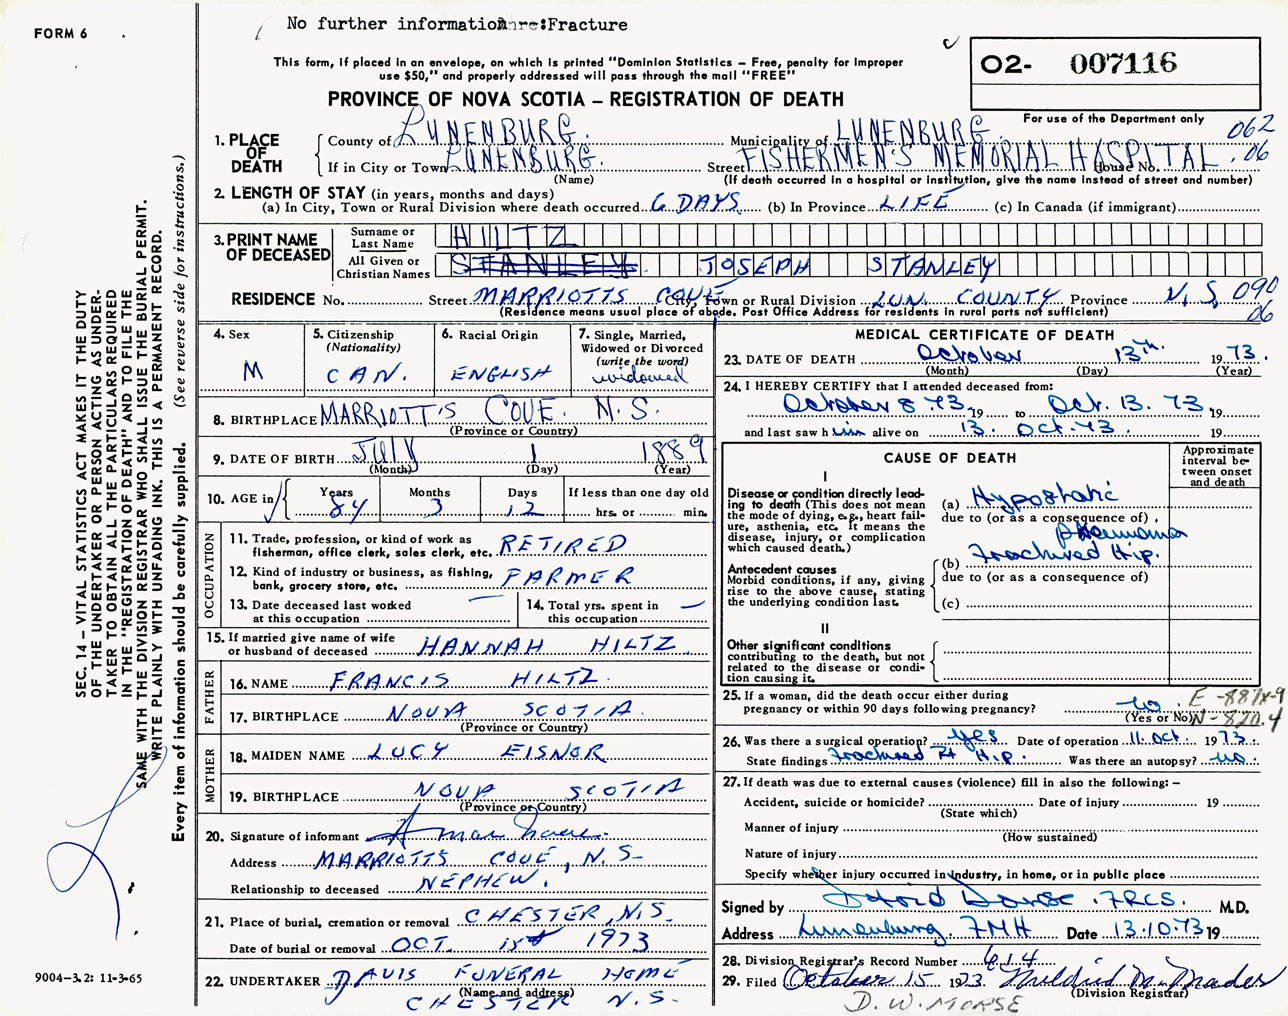 FORM 6
No further information re: Fracture
This form, if placed in an envelope, on which is printed "Dominion Statistics – Free, penalty for improper
use $50," and properly addressed will pass through the mail "FREE"
O2- 007116
PROVINCE OF NOVA SCOTIA – REGISTRATION OF DEATH
For use of the Department only
1. PLACE OF DEATH
County of LUNENBURG. Municipality of LUNENBURG 062
If in City or Town LUNENBURG. Street FISHERMEN'S MEMORIAL HOSPITAL. House No. 06
(Name) (If death occurred in a hospital or institution, give the name instead of street and number)
2. LENGTH OF STAY (in years, months and days)
(a) In City, Town or Rural Division where death occurred. 6 DAYS (b) In Province LIFE (c) In Canada (if immigrant)
3. PRINT NAME OF DECEASED
Surname or Last Name HILTZ
All Given or Christian Names STANLEY JOSEPH STANLEY
RESIDENCE No. Street MARRIOTTS COVE City, Town or Rural Division LUN. COUNTY Province N.S. 090
(Residence means usual place of abode. Post Office Address for residents in rural parts not sufficient) 06
4. Sex M
5. Citizenship (Nationality) CAN.
6. Racial Origin ENGLISH
7. Single, Married, Widowed or Divorced (write the word) widowed
8. BIRTHPLACE MARRIOTT'S COVE. N.S.
(Province or Country)
9. DATE OF BIRTH JULY 1 1889
(Month) (Day) (Year)
10. AGE in Years 84 Months 3 Days 12 If less than one day old hrs. or min.
OCCUPATION
11. Trade, profession, or kind of work as fisherman, office clerk, sales clerk, etc. RETIRED
12. Kind of industry or business, as fishing, bank, grocery store, etc. FARMER
13. Date deceased last worked at this occupation —
14. Total yrs. spent in this occupation —
15. If married give name of wife or husband of deceased HANNAH HILTZ
FATHER
16. NAME FRANCIS HILTZ
17. BIRTHPLACE NOVA SCOTIA
(Province or Country)
MOTHER
18. MAIDEN NAME LUCY EISNOR
19. BIRTHPLACE NOVA SCOTIA
(Province or Country)
20. Signature of informant
Address MARRIOTTS COVE, N.S.
Relationship to deceased NEPHEW.
21. Place of burial, cremation or removal CHESTER, N.S.
Date of burial or removal OCT. 15 1973
22. UNDERTAKER DAVIS FUNERAL HOME
(Name and address)
CHESTER N.S.
MEDICAL CERTIFICATE OF DEATH
23. DATE OF DEATH October 13th 1973.
(Month) (Day) (Year)
24. I HEREBY CERTIFY that I attended deceased from:
October 8 73 19 to Oct. 13. 73 19
and last saw him alive on 13. Oct. 73. 19
CAUSE OF DEATH
Approximate interval between onset and death
I
Disease or condition directly leading to death (This does not mean the mode of dying, e.g., heart failure, asthenia, etc. It means the disease, injury, or complication which caused death.)
(a) Hypostatic
due to (or as a consequence of)
pneumonia
Antecedent causes
Morbid conditions, if any, giving rise to the above cause, stating the underlying condition last.
(b) Fractured Hip.
due to (or as a consequence of)
(c)
II
Other significant conditions
contributing to the death, but not related to the disease or condition causing it.
25. If a woman, did the death occur either during pregnancy or within 90 days following pregnancy? no
(Yes or No)
E-887X-9
N-820.4
26. Was there a surgical operation? yes Date of operation 11. Oct. 1973.
State findings Fractured Rt Hip. Was there an autopsy? no
27. If death was due to external causes (violence) fill in also the following: –
Accident, suicide or homicide? Date of injury 19
(State which)
Manner of injury
(How sustained)
Nature of injury
Specify whether injury occurred in industry, in home, or in public place
Signed by David Dorse. FRCS. M.D.
Address Lunenburg. FMH Date 13.10.73 19
28. Division Registrar's Record Number 614
29. Filed October 15 1973. Mildred M. Mader
(Division Registrar)
D. W. MORSE
SEC. 14 – VITAL STATISTICS ACT MAKES IT THE DUTY
OF THE UNDERTAKER OR PERSON ACTING AS UNDER-
TAKER TO OBTAIN ALL THE PARTICULARS REQUIRED
IN THE "REGISTRATION OF DEATH" AND TO FILE THE
SAME WITH THE DIVISION REGISTRAR WHO SHALL ISSUE THE BURIAL PERMIT.
WRITE PLAINLY WITH UNFADING INK. THIS IS A PERMANENT RECORD.
Every item of information should be carefully supplied. (See reverse side for instructions.)
9004-3.2: 11-3-65